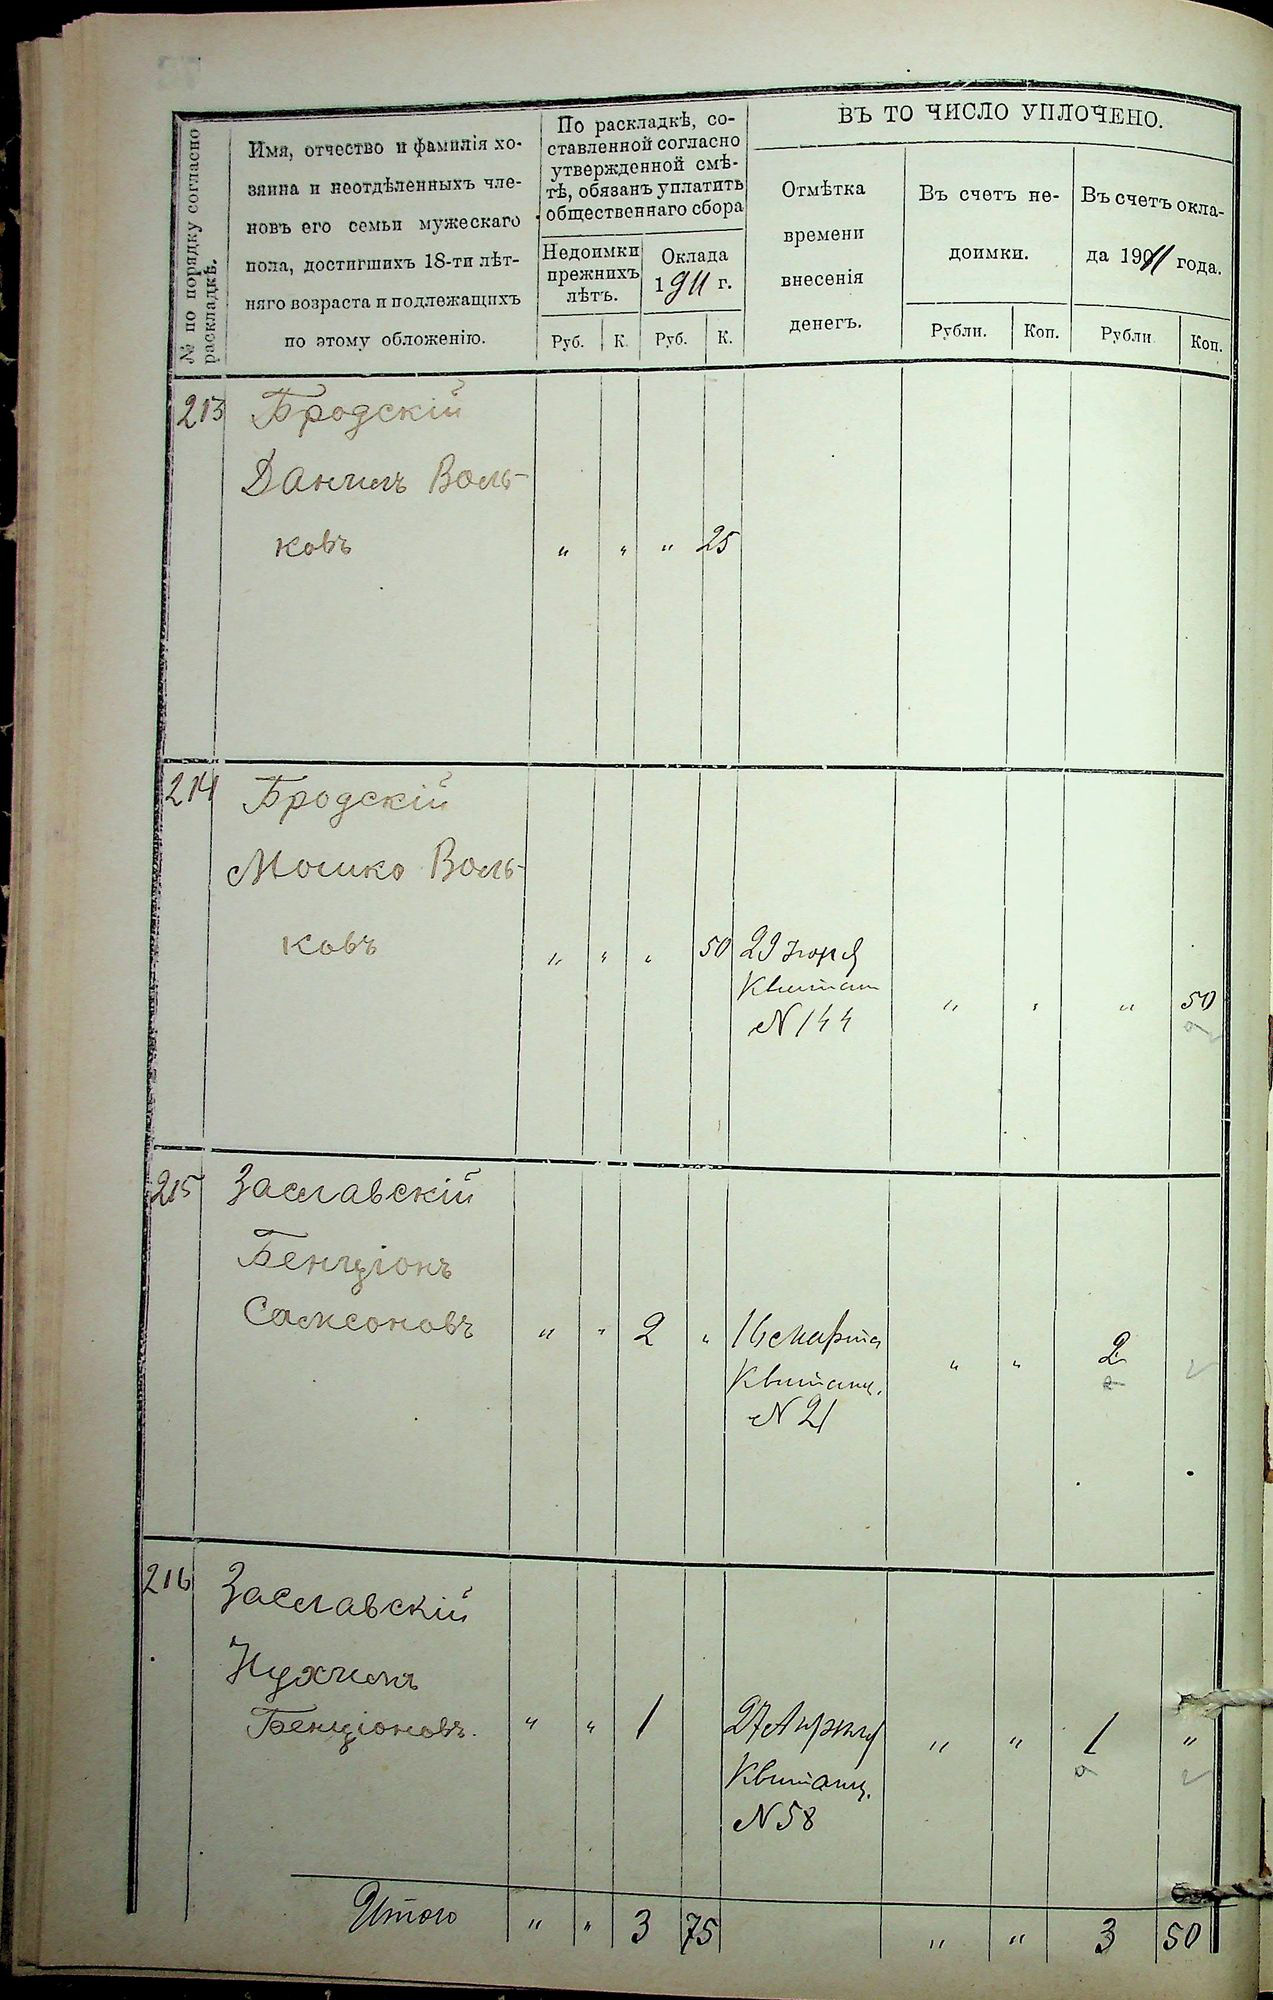 № по порядку согласно
раскладкѣ.
Имя, отчество и фамилія хо-
зяина и неотдѣленныхъ чле-
новъ его семьи мужескаго
пола, достигшихъ 18-ти лѣт-
няго возраста и подлежащихъ
по этому обложенію.
По раскладкѣ, со-
ставленной согласно
утвержденной смѣ-
тѣ, обязанъ уплатить
общественнаго сбора
Недоимки
прежнихъ
лѣтъ.
Оклада
1911 г.
Руб. К. Руб. К.
ВЪ ТО ЧИСЛО УПЛОЧЕНО.
Отмѣтка
времени
внесенія
денегъ.
Въ счетъ не-
доимки.
Въ счетъ окла-
да 1911 года.
Рубли. Коп. Рубли Коп.
213 Бродскій
Данилъ Воль-
ковъ " " " 25
214 Бродскій
Мошко Воль-
ковъ " " " 50 29 Ноября
Квитан
N 144 " " " 50
215 Заславскій
Бенціонъ
Самсоновъ " " 2 " 16 Марта
Квитанц.
N 21 " " 2
216 Заславскій
Нухимъ
Бенціоновъ. " " 1 27 Апрѣля
Квитанц.
N 58 " " 1 "
Итого " " 3 75 " " 3 50